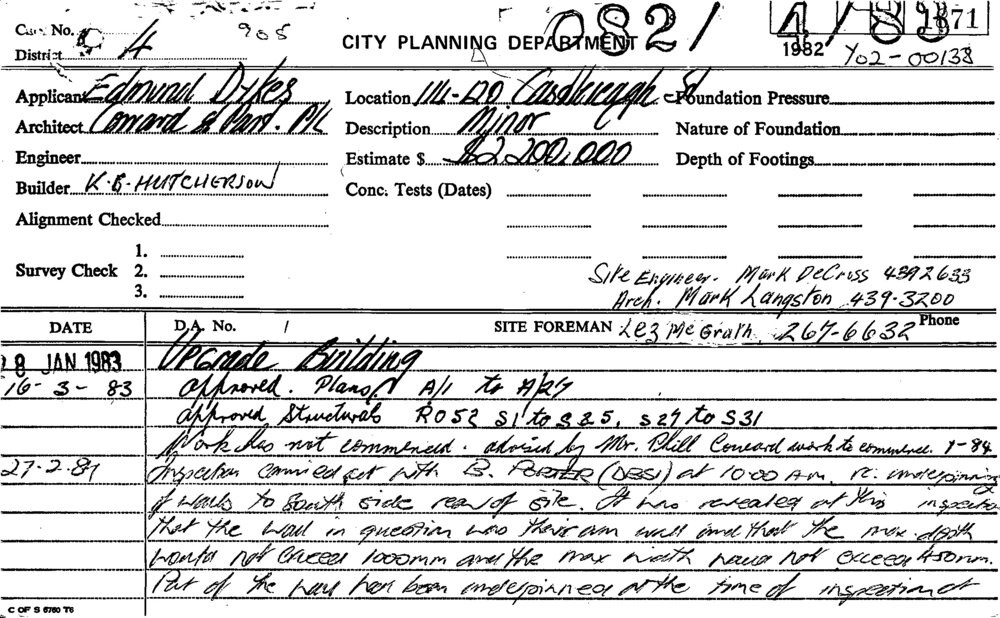 Card No. 905 082/ 4/83 1871
District 4 CITY PLANNING DEPARTMENT 1982 Y02-00138
Applicant Edmund Dykes Location 111-120 Castlereagh St Foundation Pressure
Architect Conard & Part. P/L Description Minor Nature of Foundation
Engineer Estimate $ $2,200,000 Depth of Footings
Builder K.B. HUTCHERSON Conc. Tests (Dates)
Alignment Checked
1.
Survey Check 2.
3.
Site Engineer. Mark DeCross 4392633
Arch. Mark Langston 439-3200
DATE D.A. No. / SITE FOREMAN Lez McGrath 267-6632 Phone
28 JAN 1983 Upgrade Building
16-3-83 Approved. Plans A/1 to A/27
Approved Structurals R052 S1 to S25, S27 to S31
Work has not commenced. advised by Mr. Phill Conard work to commence. 1-84
27-2-84 Inspection carried out with B. PORTER (DBSI) at 10:00 Am. re. underpinning
of walls to South side rear of site. It was revealed at this inspection
that the wall in question was their own wall and that the max depth
would not exceed 1000mm and the max width would not exceed 450mm.
Part of the wall had been underpinned at the time of inspection
C OF S 6760 T6